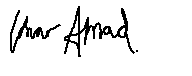 Umar Ahmad